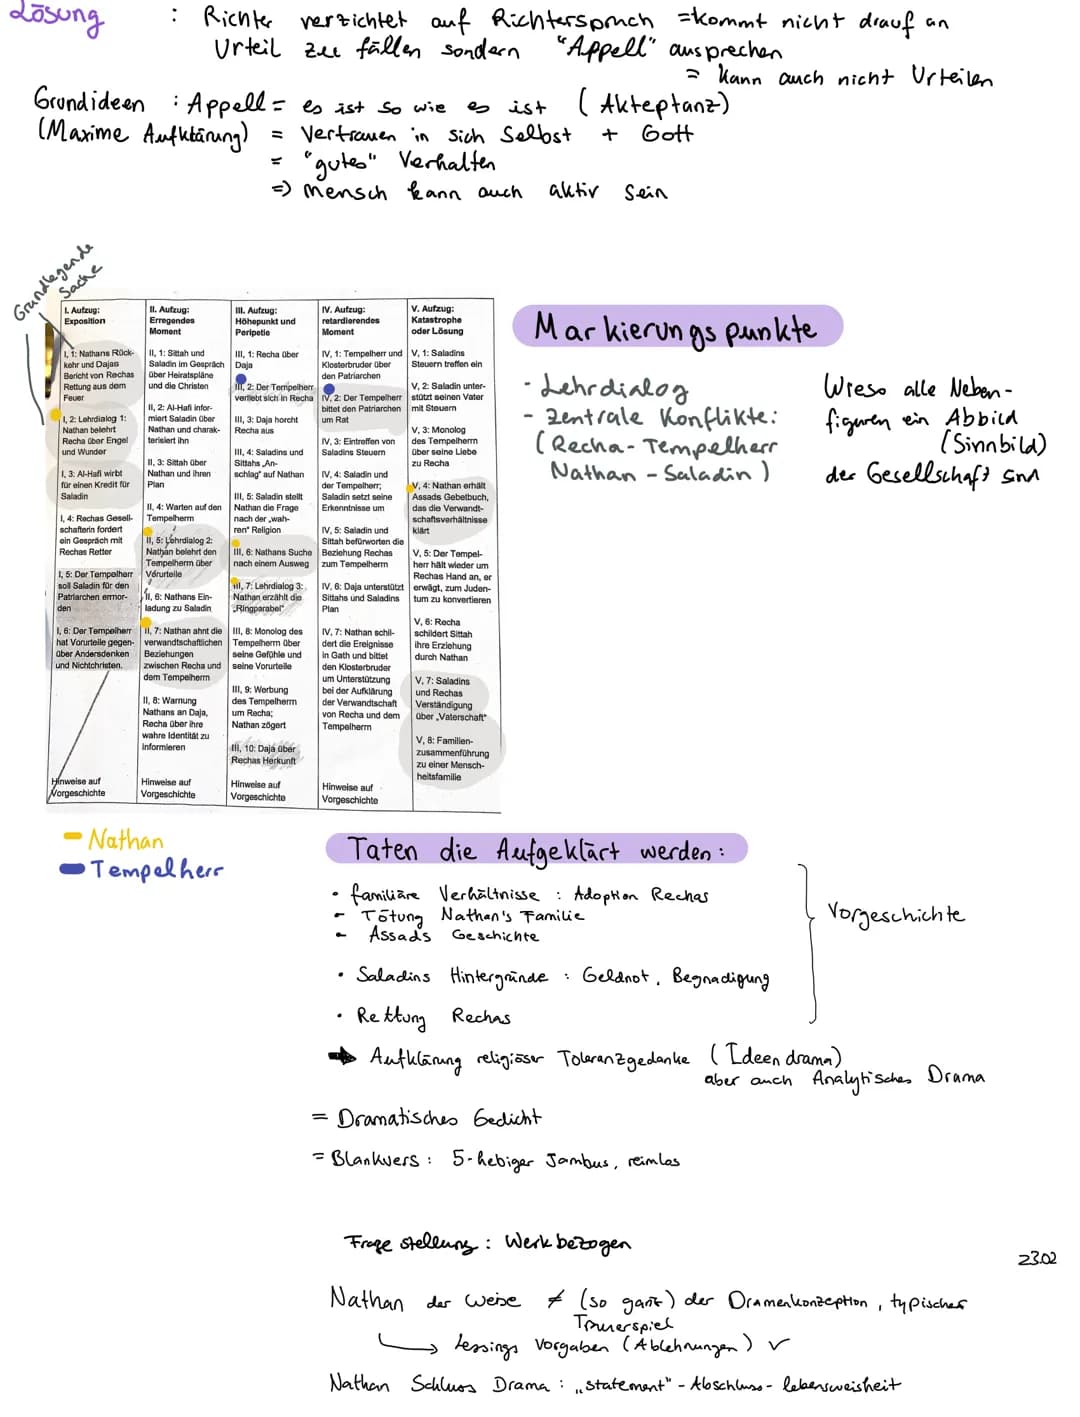 Lösung : Richter verzichtet auf Richterspruch = kommt nicht drauf an
Urteil zu fällen sondern "Appell" aussprechen
= kann auch nicht Urteilen
Grundideen : Appell = es ist so wie es ist (Akteptanz)
(Maxime Aufklärung) = Vertrauen in sich Selbst + Gott
= "gutes" Verhalten
=> mensch kann auch aktiv sein
Grundlegende
Sache
I. Aufzug:
Exposition
I, 1: Nathans Rück-
kehr und Dajas
Bericht von Rechas
Rettung aus dem
Feuer
I, 2: Lehrdialog 1:
Nathan belehrt
Recha über Engel
und Wunder
I, 3: Al-Hafi wirbt
für einen Kredit für
Saladin
I, 4: Rechas Gesell-
schafterin fordert
ein Gespräch mit
Rechas Retter
I, 5: Der Tempelherr
soll Saladin für den
Patriarchen ermor-
den
I, 6: Der Tempelherr
hat Vorurteile gegen-
über Andersdenken
und Nichtchristen.
Hinweise auf
Vorgeschichte
II. Aufzug:
Erregendes
Moment
II, 1: Sittah und
Saladin im Gespräch
über Heiratspläne
und die Christen
II, 2: Al-Hafi infor-
miert Saladin über
Nathan und charak-
terisiert ihn
II, 3: Sittah über
Nathan und ihren
Plan
II, 4: Warten auf den
Tempelherrn
II, 5: Lehrdialog 2:
Nathan belehrt den
Tempelherrn über
Vorurteile
II, 6: Nathans Ein-
ladung zu Saladin
II, 7: Nathan ahnt die
verwandtschaftlichen
Beziehungen
zwischen Recha und
dem Tempelherrn
II, 8: Warnung
Nathans an Daja,
Recha über ihre
wahre Identität zu
informieren
Hinweise auf
Vorgeschichte
III. Aufzug:
Höhepunkt und
Peripetie
III, 1: Recha über
Daja
III, 2: Der Tempelherr
verliebt sich in Recha
III, 3: Daja horcht
Recha aus
III, 4: Saladins und
Sittahs „An-
schlag" auf Nathan
III, 5: Saladin stellt
Nathan die Frage
nach der „wah-
ren" Religion
III, 6: Nathans Suche
nach einem Ausweg
III, 7: Lehrdialog 3:
Nathan erzählt die
„Ringparabel"
III, 8: Monolog des
Tempelherrn über
seine Gefühle und
seine Vorurteile
III, 9: Werbung
des Tempelherrn
um Recha;
Nathan zögert
III, 10: Daja über
Rechas Herkunft
Hinweise auf
Vorgeschichte
IV. Aufzug:
retardierendes
Moment
IV, 1: Tempelherr und
Klosterbruder über
den Patriarchen
IV, 2: Der Tempelherr
bittet den Patriarchen
um Rat
IV, 3: Eintreffen von
Saladins Steuern
IV, 4: Saladin und
der Tempelherr;
Saladin setzt seine
Erkenntnisse um
IV, 5: Saladin und
Sittah befürworten die
Beziehung Rechas
zum Tempelherrn
IV, 6: Daja unterstützt
Sittahs und Saladins
Plan
IV, 7: Nathan schil-
dert die Ereignisse
in Gath und bittet
den Klosterbruder
um Unterstützung
bei der Aufklärung
der Verwandtschaft
von Recha und dem
Tempelherrn
Hinweise auf
Vorgeschichte
V. Aufzug:
Katastrophe
oder Lösung
V, 1: Saladins
Steuern treffen ein
V, 2: Saladin unter-
stützt seinen Vater
mit Steuern
V, 3: Monolog
des Tempelherrn
über seine Liebe
zu Recha
V, 4: Nathan erhält
Assads Gebetbuch,
das die Verwandt-
schaftsverhältnisse
klärt
V, 5: Der Tempel-
herr hält wieder um
Rechas Hand an, er
erwägt, zum Juden-
tum zu konvertieren
V, 6: Recha
schildert Sittah
ihre Erziehung
durch Nathan
V, 7: Saladins
und Rechas
Verständigung
über „Vaterschaft"
V, 8: Familien-
zusammenführung
zu einer Mensch-
heitsfamilie
Markierungspunkte
- Lehrdialog
- Zentrale Konflikte:
(Recha - Tempelherr
Nathan - Saladin )
Wieso alle Neben-
figuren ein Abbild
(Sinnbild)
der Gesellschaft sind
- Nathan
- Tempelherr
Taten die Aufgeklärt werden:
• familiäre Verhältnisse : Adoption Rechas
- Tötung Nathan's Familie
- Assads Geschichte
• Saladins Hintergründe : Geldnot, Begnadigung
• Rettung Rechas
Vorgeschichte
➔ Aufklärung religiöser Toleranzgedanke (Ideendrama)
aber auch Analytisches Drama
= Dramatisches Gedicht
= Blankvers : 5-hebiger Jambus, reimlos
Fragestellung : Werkbezogen
23.02
Nathan der Weise ≠ (so ganz) der Dramenkonzeption, typisches
Trauerspiel
↳ Lessings Vorgaben (Ablehnungen) ✓
Nathan Schluss Drama : „statement" - Abschluss - lebensweisheit